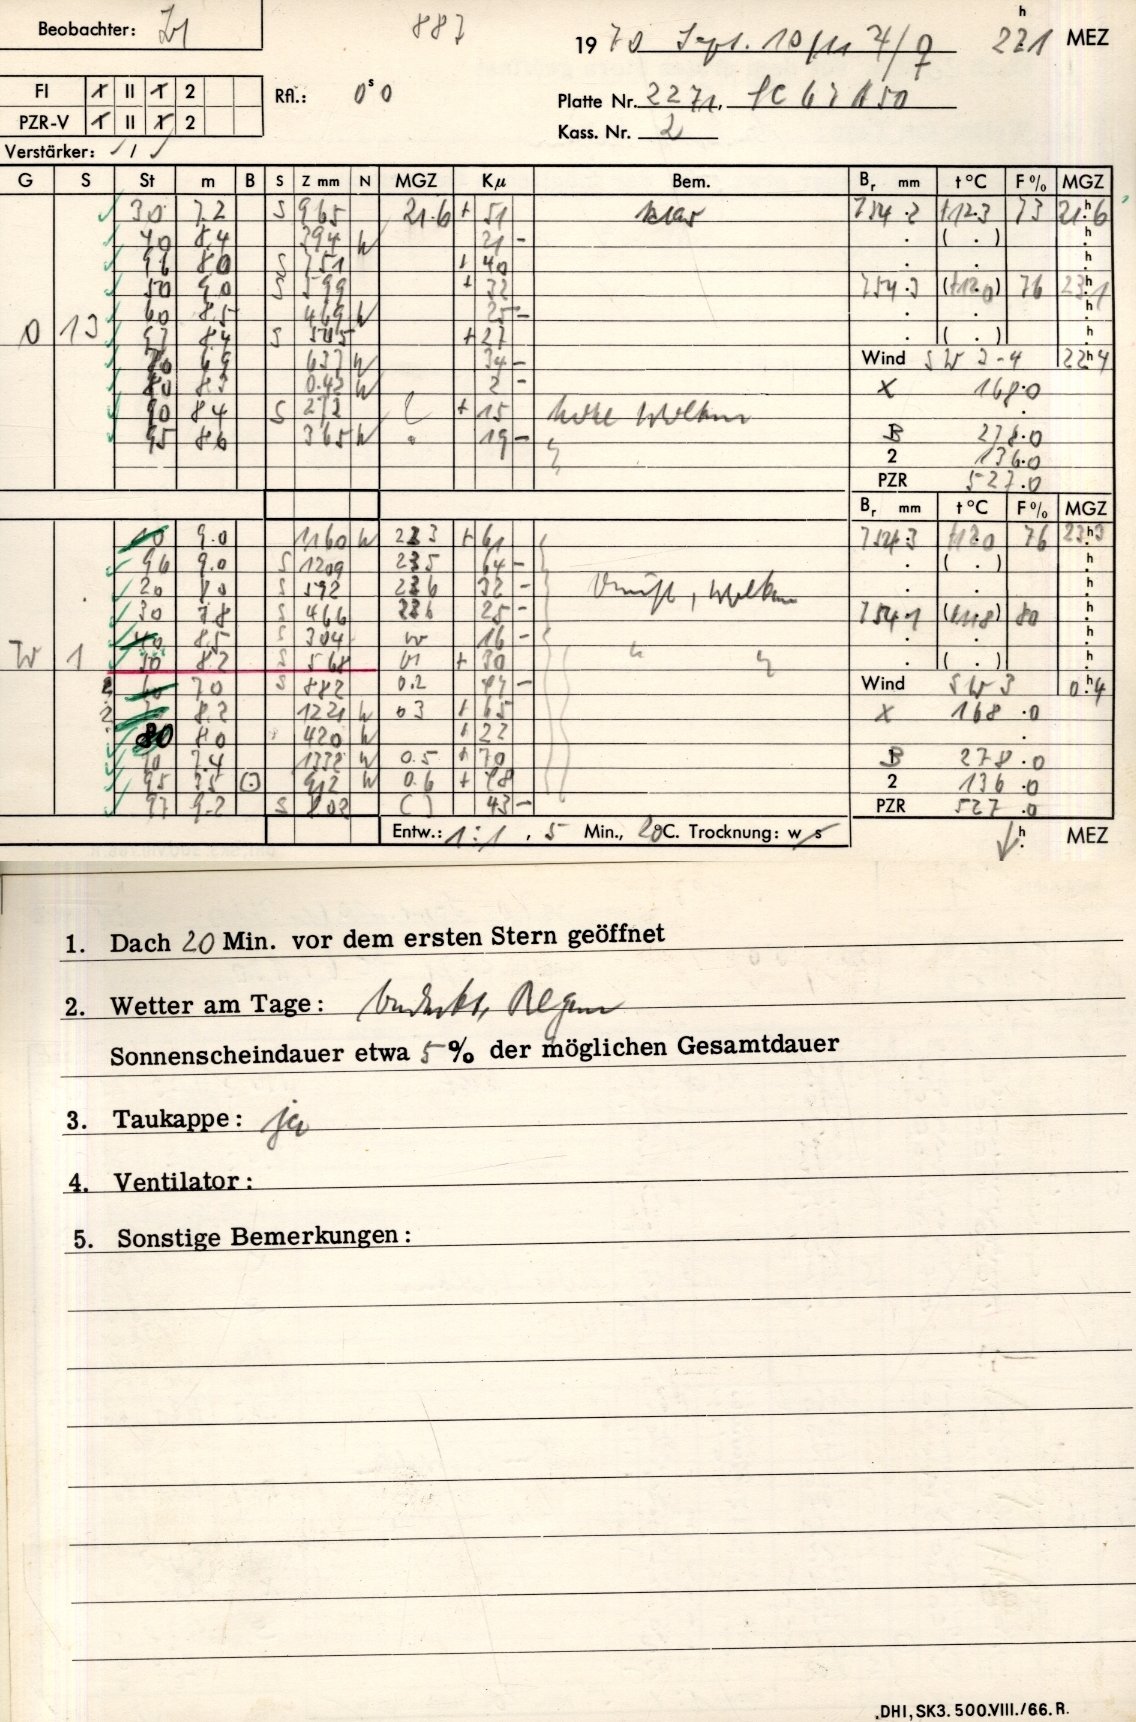 Beobachter:
887
1970 Sept. 10/11 221 h MEZ
FI X II X 2
PZR-V X II X 2
Rfl.: 0s0
Platte Nr. 2271,
Kass. Nr. 2
Verstärker: / 1 /
G S St m B S Z mm N MGZ Kμ Bem. Br mm t°C F% MGZ
30 7.2 S 965 21.6 + 51 klar 754.2 +12.3 73 21h6
40 8.4 394 W 21 - ( . ) h
96 8.0 S 751 + 40
50 9.0 S 599 + 32 754.3 (+12.0) 76 23h1
60 8.5 469 W 25 - h
O 13 97 8.4 S 505 + 27 ( . ) h
70 6.9 637 W 34 - Wind SW 3-4 22h4
80 8.3 042 W 2 - X 168.0
90 8.4 S 272 + 15 hohe Wolken
95 8.6 365 W 19 - B 278.0
2 136.0
PZR 527.0
Br mm t°C F% MGZ
10 9.0 1160 W 223 + 61 754.3 +12.0 76 23h3
96 9.0 S 1209 235 64 - ( . ) h
20 8.0 S 592 236 32 - Dunst, Wolken
30 7.8 S 466 236 25 - 754.1 (+11.8) 80 h
40 8.5 S 304 16 -
W 1 50 8.2 S 568 + 30 ( . ) h
60 7.0 S 882 0.2 47 - Wind SW 3 0h4
8.2 1221 W 03 + 65 X 168.0
80 8.0 420 W + 22
7.4 1332 W 0.5 + 70 B 278.0
95 912 W 0.6 + 48 2 136.0
97 9.2 S 802 ( ) 43 - PZR 527.0
Entw.: 1:1, 5 Min., 20C. Trocknung: w s h MEZ
1. Dach 20 Min. vor dem ersten Stern geöffnet
2. Wetter am Tage: bedeckt, Regen
Sonnenscheindauer etwa 5% der möglichen Gesamtdauer
3. Taukappe: ja
4. Ventilator:
5. Sonstige Bemerkungen:
DHI, SK3. 500.VIII./66. R.